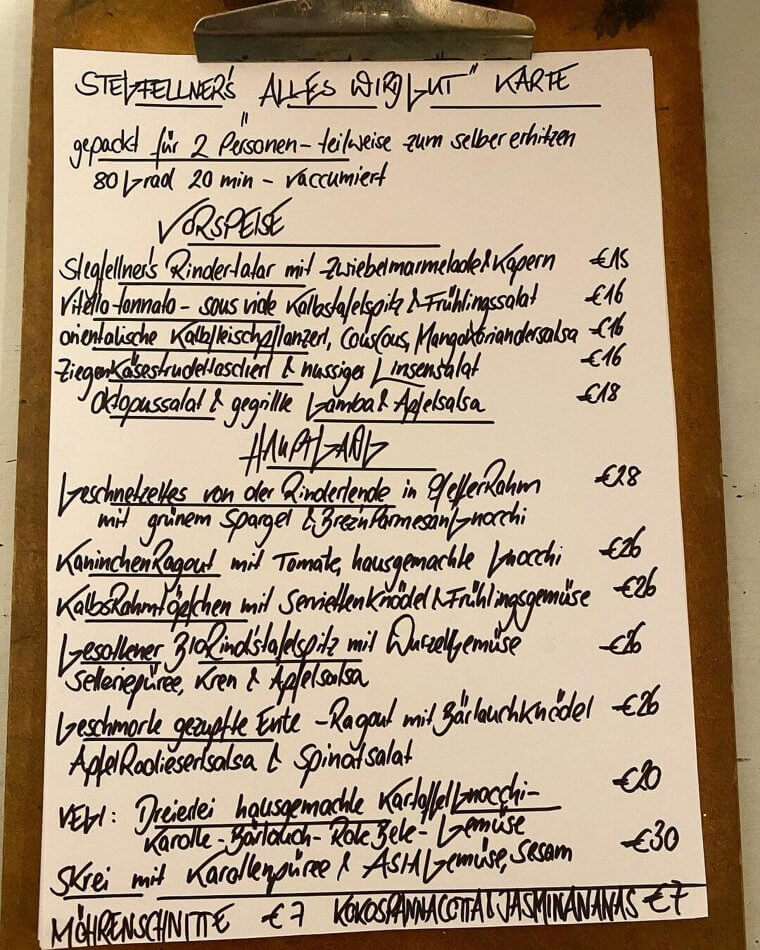 STEGFELLNER'S "ALLES WIRD GUT" KARTE
gepackt für 2 Personen - teilweise zum selber erhitzen
80 Grad 20 min - vaccumiert
VORSPEISE
Stegfellner's Rindertatar mit Zwiebelmarmelade & Kapern €15
Vitello tonnato - sous vide Kalbstafelspitz & Frühlingssalat €16
orientalische Kalbfleischpflanzerl, CousCous, Mangokoriandersalsa €16
Ziegenkäsestrudeltascherl & nussiger Linsensalat €16
Oktopussalat & gegrillte Gamba & Apfelsalsa €18
HAUPTGANG
Geschnetzeltes von der Rinderlende in PfefferRahm €28
mit grünem Spargel & BreznParmesanGnocchi
KaninchenRagout mit Tomate, hausgemachte Gnocchi €26
KalbsRahmtöpfchen mit ServiettenKnödel & Frühlingsgemüse €26
Gesottener BIORindstafelspitz mit WurzelGemüse €26
Selleriepüree, Kren & Apfelsalsa
Geschmorte gezupfte Ente - Ragout mit BärlauchKnödel €26
ApfelRadieserlsalsa & Spinatsalat
VEGI: Dreierlei hausgemachte KartoffelGnocchi - €20
Karotte - Bärlauch - Rote Bete - Gemüse
Skrei mit Karottenpüree & ASIAGemüse, Sesam €30
MÖHRENSCHNITTE €7 KOKOSPANNACOTTA & JASMINANANAS €7